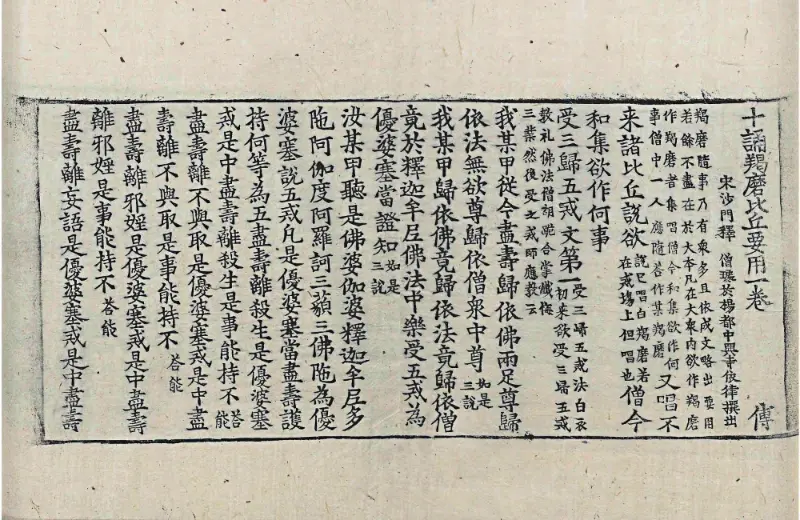 十誦羯磨比丘要用一卷 傅
宋沙門釋 僧璩於楊都中興寺依律撰出
羯磨隨事乃有衆多且依成文略出要用
若餘不盡在於大本凡在大衆内欲作羯磨
作羯磨者集唱僧今和集欲作何又唱不
事僧中一人應隨答作某羯磨
来諸比丘說欲說已唱白羯磨若在戒場上但唱也僧今
和集欲作何事
受三歸五戒文第一受三歸五戒法白衣初来欲受三歸五戒
教礼佛法僧胡跪合掌懴悔
三業然後受之戒師應教云
我某甲從今盡壽歸依佛兩足尊歸
依法無欲尊歸依僧衆中尊如是三說
我某甲歸依佛竟歸依法竟歸依僧
竟於釋迦牟尼佛法中樂受五戒為
優婆塞當證知如是三說
汝某甲聽是佛婆伽婆釋迦牟尼多
陁阿伽度阿羅訶三藐三佛陁為優
婆塞說五戒凡是優婆塞當盡壽護
持何等為五盡壽離殺生是優婆塞
戒是中盡壽離殺生是事能持不答能
盡壽離不與取是優婆塞戒是中盡
壽離不與取是事能持不答能
盡壽離邪婬是優婆塞戒是中盡壽
離邪婬是事能持不答能
盡壽離妄語是優婆塞戒是中盡壽